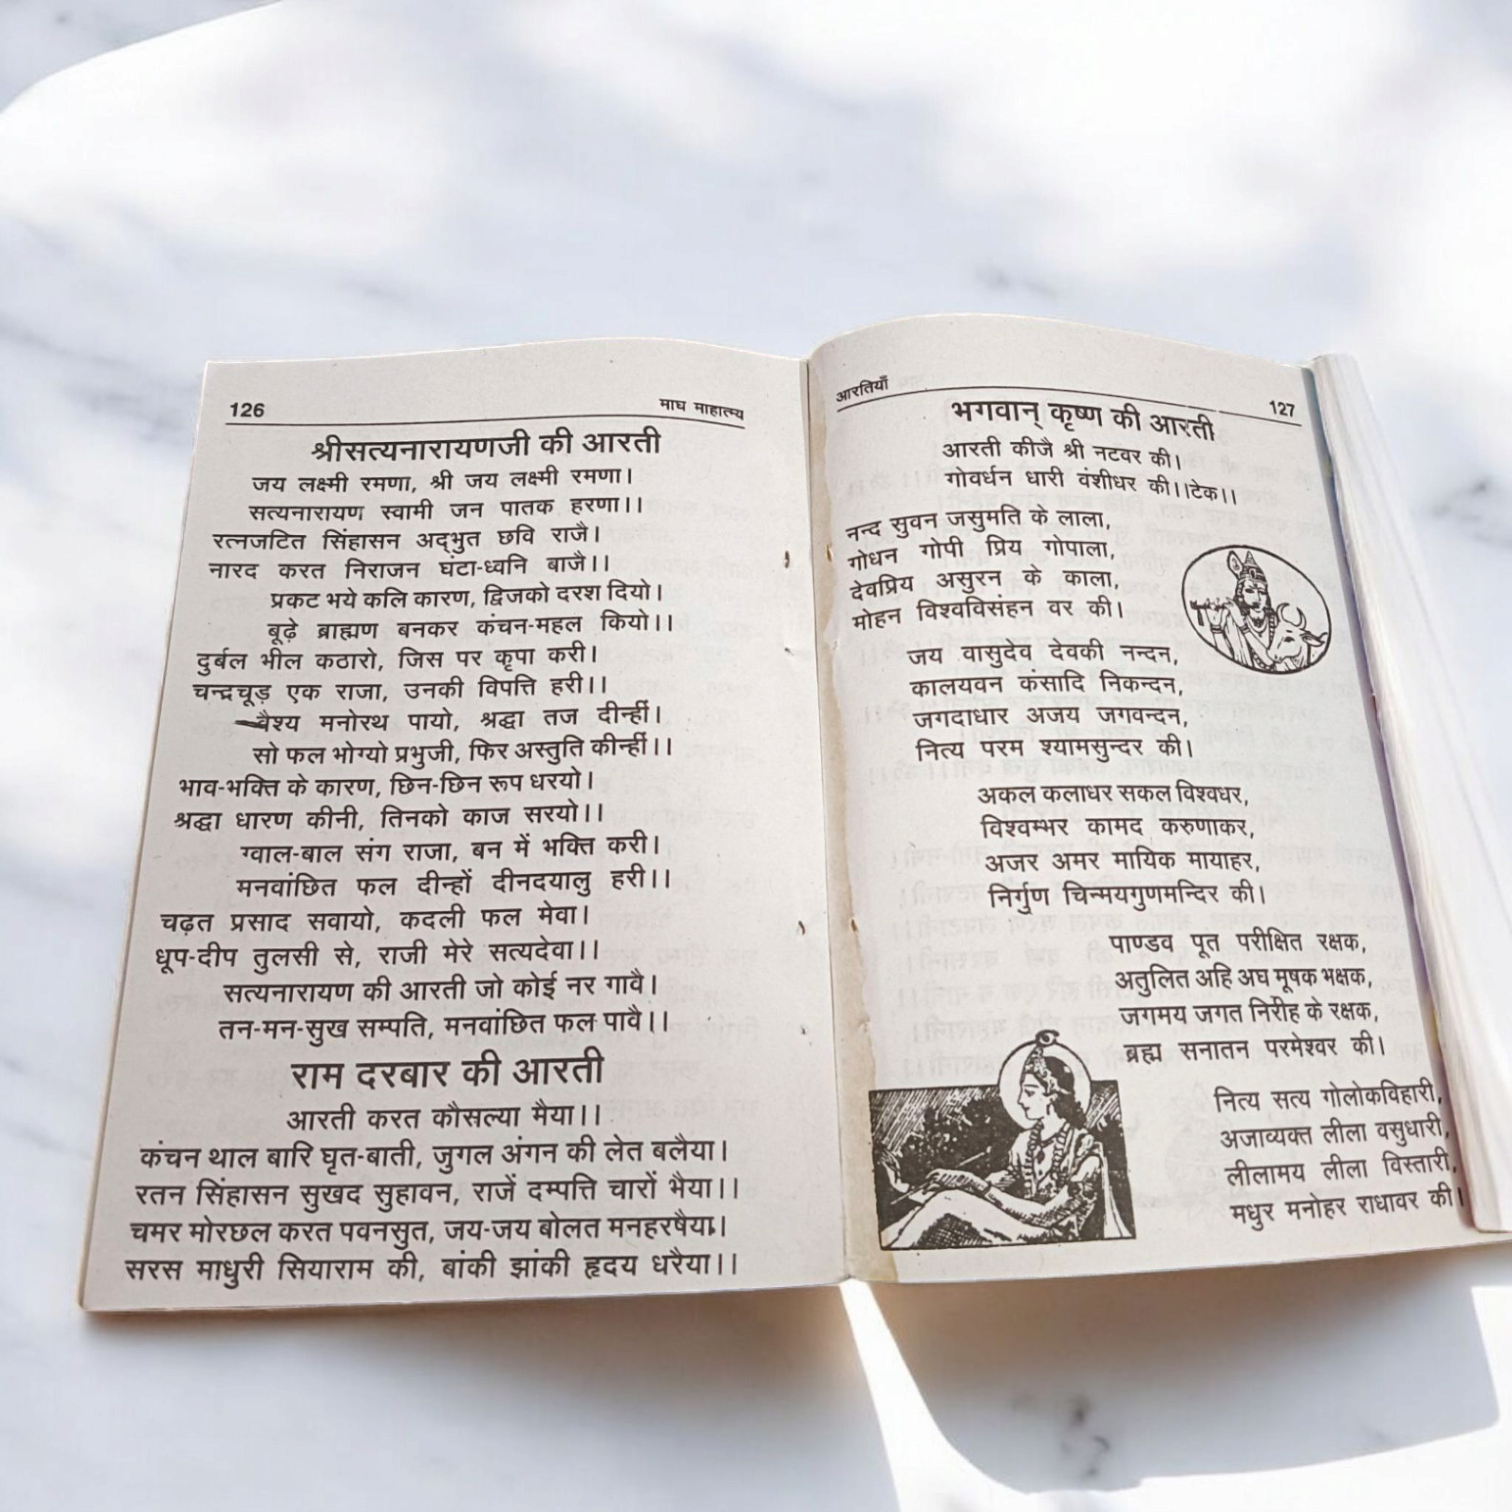 126 माघ माहात्म्य
श्रीसत्यनारायणजी की आरती
जय लक्ष्मी रमणा, श्री जय लक्ष्मी रमणा।
सत्यनारायण स्वामी जन पातक हरणा।।
रत्नजटित सिंहासन अद्भुत छवि राजै।
नारद करत निराजन घंटा-ध्वनि बाजै।।
प्रकट भये कलि कारण, द्विजको दरश दियो।
बूढ़े ब्राह्मण बनकर कंचन-महल कियो।।
दुर्बल भील कठारो, जिस पर कृपा करी।
चन्द्रचूड़ एक राजा, उनकी विपत्ति हरी।।
वैश्य मनोरथ पायो, श्रद्धा तज दीन्हीं।
सो फल भोग्यो प्रभुजी, फिर अस्तुति कीन्हीं।।
भाव-भक्ति के कारण, छिन-छिन रूप धरयो।
श्रद्धा धारण कीनी, तिनको काज सरयो।।
ग्वाल-बाल संग राजा, बन में भक्ति करी।
मनवांछित फल दीन्हों दीनदयालु हरी।।
चढ़त प्रसाद सवायो, कदली फल मेवा।
धूप-दीप तुलसी से, राजी मेरे सत्यदेवा।।
सत्यनारायण की आरती जो कोई नर गावै।
तन-मन-सुख सम्पति, मनवांछित फल पावै।।
राम दरबार की आरती
आरती करत कौसल्या मैया।।
कंचन थाल बारि घृत-बाती, जुगल अंगन की लेत बलैया।
रतन सिंहासन सुखद सुहावन, राजें दम्पत्ति चारों भैया।।
चमर मोरछल करत पवनसुत, जय-जय बोलत मनहरषैया।
सरस माधुरी सियाराम की, बांकी झांकी हृदय धरैया।।
आरतियाँ 127
भगवान् कृष्ण की आरती
आरती कीजै श्री नटवर की।
गोवर्धन धारी वंशीधर की।।टेक।।
नन्द सुवन जसुमति के लाला,
गोधन गोपी प्रिय गोपाला,
देवप्रिय असुरन के काला,
मोहन विश्वविसंहन वर की।
जय वासुदेव देवकी नन्दन,
कालयवन कंसादि निकन्दन,
जगदाधार अजय जगवन्दन,
नित्य परम श्यामसुन्दर की।
अकल कलाधर सकल विश्वधर,
विश्वम्भर कामद करुणाकर,
अजर अमर मायिक मायाहर,
निर्गुण चिन्मयगुणमन्दिर की।
पाण्डव पूत परीक्षित रक्षक,
अतुलित अहि अघ मूषक भक्षक,
जगमय जगत निरीह के रक्षक,
ब्रह्म सनातन परमेश्वर की।
नित्य सत्य गोलोकविहारी,
अजाव्यक्त लीला वसुधारी,
लीलामय लीला विस्तारी,
मधुर मनोहर राधावर की।